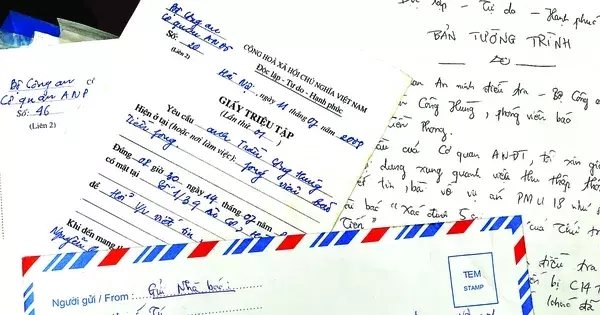 Bộ Công an
Cơ quan ANĐT
Số: 46
(Liên 2)
Bộ Công an
Cơ quan ANĐT
Số:
(Liên 2)
CỘNG HOÀ XÃ HỘI CHỦ NGHĨA VIỆT NAM
Độc lập - Tự do - Hạnh phúc
Hà Nội, ngày 11 tháng 07 năm 2008
GIẤY TRIỆU TẬP
(Lần thứ 01)
Yêu cầu anh Trần Công Hùng
Hiện ở tại (hoặc nơi làm việc): phóng viên báo
Tiền phong
Đúng 08 giờ 30 ngày 14 tháng 07 năm
có mặt tại
để Hỏi v/v viết tin
Khi đến mang th
Nguyễn
lập - Tự do - Hạnh phúc
BẢN TƯỜNG TRÌNH
quan An ninh điều tra - Bộ Công a
Công Hùng, phóng viên báo
Tiền Phong.
cầu của Cơ quan ANĐT, tôi xin
dung xung quanh việc thu thập thông
viết tin, bài về vụ án PMU 18 như
báo "Xác định 5
Tiến"
của Thủ tr
điều tra
bị C14
Người gửi / From: Gửi Nhà báo:
TEM
STAMP